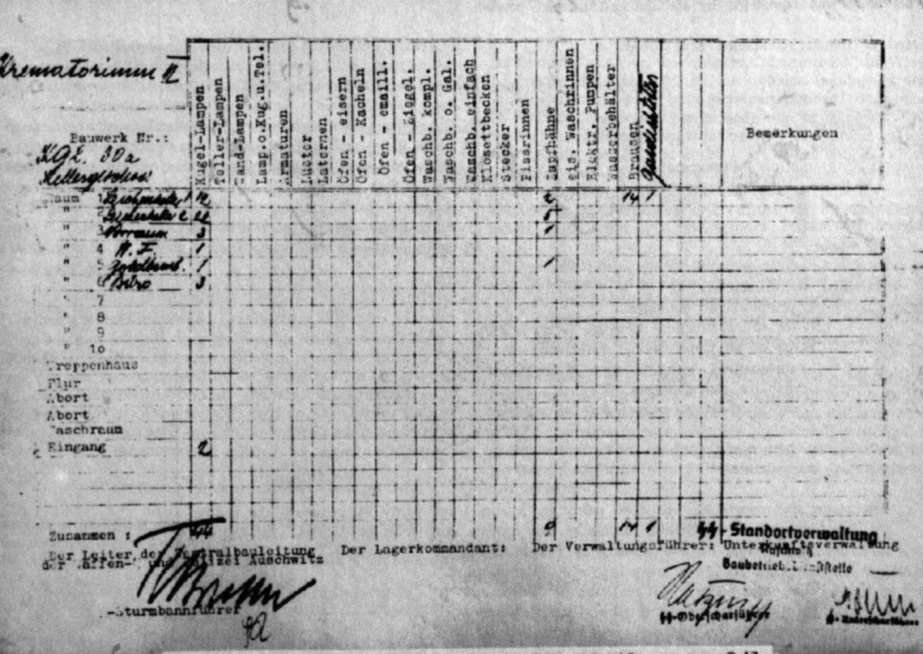 Krematorium II
Kugel-Lampen
Teller-Lampen
Wand-Lampen
Lamp.o.Kug.u.Tel.
Armaturen
Lüster
Laternen
Öfen - eisern
Öfen - Kacheln
Öfen - emaill.
Öfen - Ziegel.
Waschb. kompl.
Waschb. o. Gal.
Waschb. einfach
Klosettbecken
Stecker
Zapfhähne
eis. Waschrinnen
Elektr. Pumpen
Wasserbehälter
Brausen
Bemerkungen
Bauwerk Nr.:
KGL. 30a
Raum 1 Leichenkeller 1 12 14 1
" 2 Leichenkeller 2
" 3 Vorraum 3
" 4 1
" 5 1
" 6 Büro 3
" 7
" 8
" 9
" 10
Treppenhaus
Flur
Abort
Abort
Waschraum
Eingang 2
Zusammen : 44 9 14 1
Der Leiter der Zentralbauleitung
der Waffen- und Polizei Auschwitz
Der Lagerkommandant:
Der Verwaltungsführer:
Unterkunftsverwaltung
SS-Standortverwaltung
-Sturmbannführer
SS-Oberscharführer